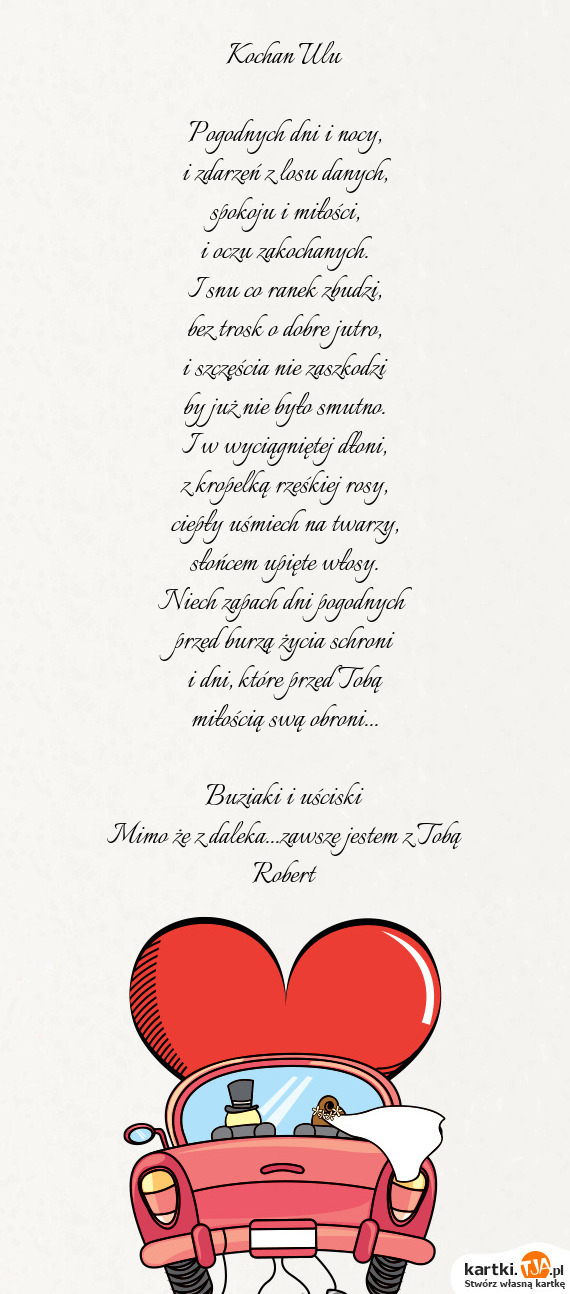 Kochan Ulu
Pogodnych dni i nocy,
i zdarzeń z losu danych,
spokoju i miłości,
i oczu zakochanych.
I snu co ranek zbudzi,
bez trosk o dobre jutro,
i szczęścia nie zaszkodzi
by już nie było smutno.
I w wyciągniętej dłoni,
z kropelką rześkiej rosy,
ciepły uśmiech na twarzy,
słońcem upięte włosy.
Niech zapach dni pogodnych
przed burzą życia schroni
i dni, które przed Tobą
miłością swą obroni...
Buziaki i uściski
Mimo że z daleka...zawsze jestem z Tobą
Robert
kartki.TJA.pl
Stwórz własną kartkę